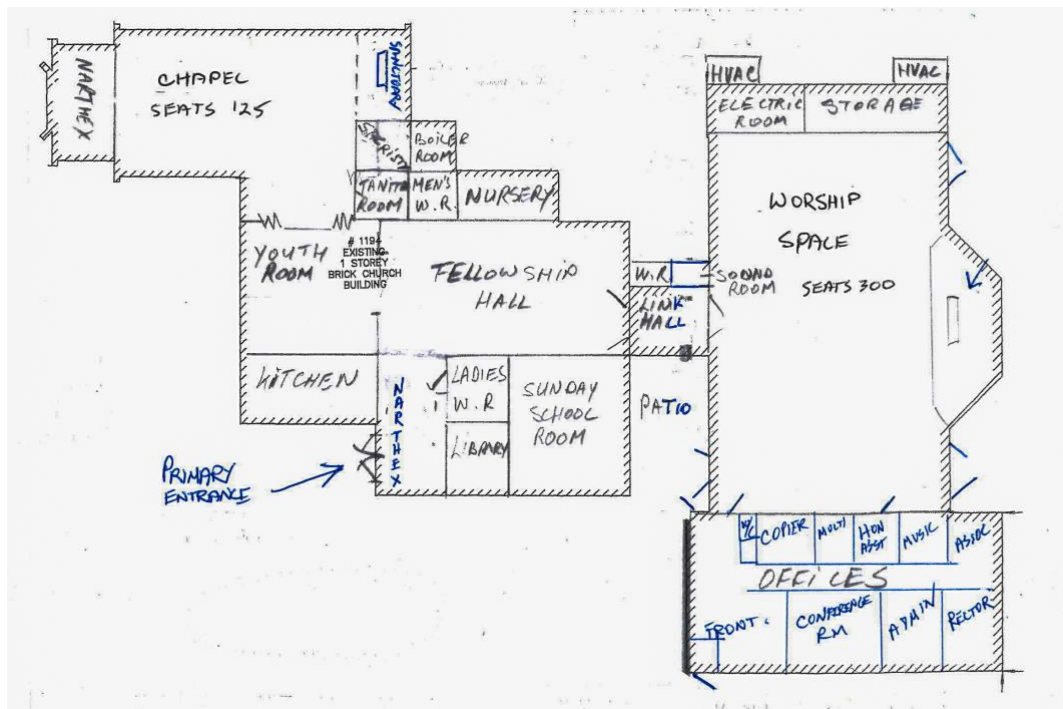 NARTHEX
CHAPEL
SEATS 125
SANCTUARY
SACRISTY
BOILER
ROOM
JANITR
ROOM
MEN'S
W.R.
NURSERY
YOUTH
ROOM
# 1194
EXISTING
1 STOREY
BRICK CHURCH
BUILDING
FELLOWSHIP
HALL
W.R
LINK
HALL
KITCHEN
NARTHEX
LADIES
W.R
LIBRARY
SUNDAY
SCHOOL
ROOM
PATIO
PRIMARY
ENTRANCE
HVAC
HVAC
ELECTRIC
ROOM
STORAGE
WORSHIP
SPACE
SEATS 300
SOUND
ROOM
W/C
COPIER
MULTI
HON
ASST
MUSIC
ASSOC
OFFICES
FRONT.
CONFERENCE
RM
ADMIN
RECTOR